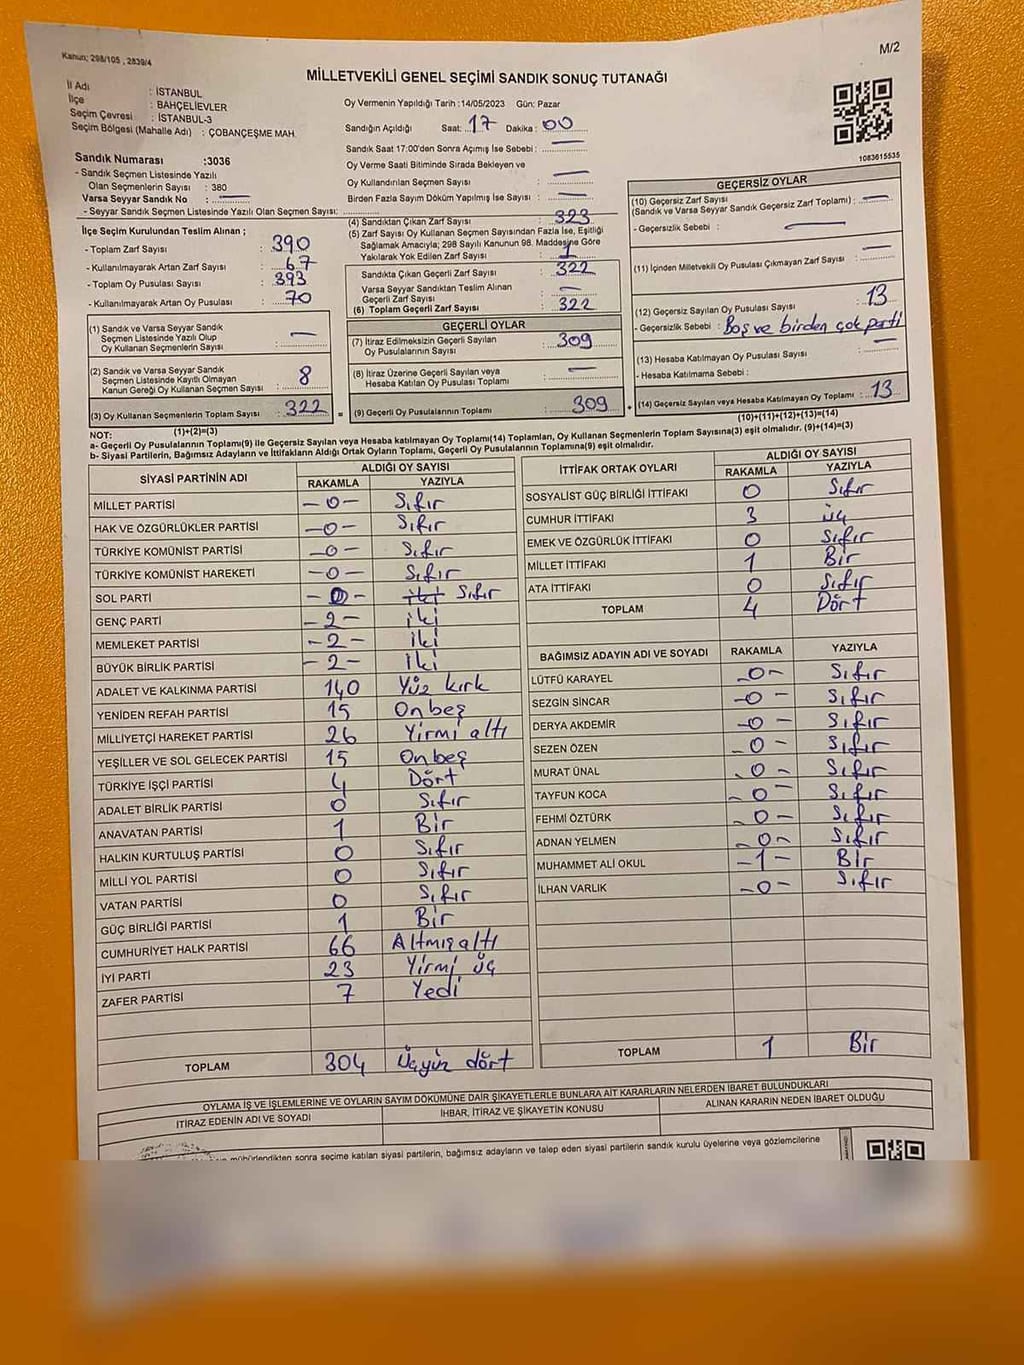 Kanun; 298/105 , 2839/4
M/2
MİLLETVEKİLİ GENEL SEÇİMİ SANDIK SONUÇ TUTANAĞI
İl Adı : İSTANBUL
İlçe : BAHÇELİEVLER
Seçim Çevresi : İSTANBUL-3
Seçim Bölgesi (Mahalle Adı) : ÇOBANÇEŞME MAH.
Oy Vermenin Yapıldığı Tarih :14/05/2023 Gün: Pazar
Sandığın Açıldığı Saat: 17 Dakika : 00
Sandık Saat 17:00'den Sonra Açımış İse Sebebi : —
Oy Verme Saati Bitiminde Sırada Bekleyen ve
Oy Kullandırılan Seçmen Sayısı : —
Birden Fazla Sayım Döküm Yapılmış İse Sayısı : —
1083615535
Sandık Numarası :3036
- Sandık Seçmen Listesinde Yazılı
Olan Seçmenlerin Sayısı : 380
Varsa Seyyar Sandık No : —
- Seyyar Sandık Seçmen Listesinde Yazılı Olan Seçmen Sayısı:
İlçe Seçim Kurulundan Teslim Alınan ;
- Toplam Zarf Sayısı : 390
- Kullanılmayarak Artan Zarf Sayısı : 67
- Toplam Oy Pusulası Sayısı : 393
- Kullanılmayarak Artan Oy Pusulası : 70
(1) Sandık ve Varsa Seyyar Sandık
Seçmen Listesinde Yazılı Olup
Oy Kullanan Seçmenlerin Sayısı : —
(2) Sandık ve Varsa Seyyar Sandık
Seçmen Listesinde Kayıtlı Olmayan
Kanun Gereği Oy Kullanan Seçmen Sayısı : 8
(3) Oy Kullanan Seçmenlerin Toplam Sayısı : 322
(1)+(2)=(3)
(4) Sandıktan Çıkan Zarf Sayısı : 323
(5) Zarf Sayısı Oy Kullanan Seçmen Sayısından Fazla İse, Eşitliği
Sağlamak Amacıyla; 298 Sayılı Kanunun 98. Maddesine Göre
Yakılarak Yok Edilen Zarf Sayısı : 1
Sandıkta Çıkan Geçerli Zarf Sayısı : 322
Varsa Seyyar Sandıktan Teslim Alınan
Geçerli Zarf Sayısı : —
(6) Toplam Geçerli Zarf Sayısı : 322
GEÇERLİ OYLAR
(7) İtiraz Edilmeksizin Geçerli Sayılan
Oy Pusulalarının Sayısı : 309
(8) İtiraz Üzerine Geçerli Sayılan veya
Hesaba Katılan Oy Pusulası Toplamı : —
= (9) Geçerli Oy Pusulalarının Toplamı : 309
GEÇERSİZ OYLAR
(10) Geçersiz Zarf Sayısı
(Sandık ve Varsa Seyyar Sandık Geçersiz Zarf Toplamı) : —
- Geçersizlik Sebebi : —
(11) İçinden Milletvekili Oy Pusulası Çıkmayan Zarf Sayısı : —
(12) Geçersiz Sayılan Oy Pusulası Sayısı : 13
- Geçersizlik Sebebi : Boş ve birden çok parti
(13) Hesaba Katılmayan Oy Pusulası Sayısı : —
- Hesaba Katılmama Sebebi :
+ (14) Geçersiz Sayılan veya Hesaba Katılmayan Oy Toplamı : 13
(10)+(11)+(12)+(13)=(14)
NOT:
a- Geçerli Oy Pusulalarının Toplamı(9) ile Geçersiz Sayılan veya Hesaba katılmayan Oy Toplamı(14) Toplamları, Oy Kullanan Seçmenlerin Toplam Sayısına(3) eşit olmalıdır. (9)+(14)=(3)
b- Siyasi Partilerin, Bağımsız Adayların ve İttifakların Aldığı Ortak Oyların Toplamı, Geçerli Oy Pusulalarının Toplamına(9) eşit olmalıdır.
SİYASİ PARTİNİN ADI ALDIĞI OY SAYISI
RAKAMLA YAZIYLA
MİLLET PARTİSİ -0- Sıfır
HAK VE ÖZGÜRLÜKLER PARTİSİ -0- Sıfır
TÜRKİYE KOMÜNİST PARTİSİ -0- Sıfır
TÜRKİYE KOMÜNİST HAREKETİ -0- Sıfır
SOL PARTİ -0- iki Sıfır
GENÇ PARTİ -2- iki
MEMLEKET PARTİSİ -2- iki
BÜYÜK BİRLİK PARTİSİ -2- iki
ADALET VE KALKINMA PARTİSİ 140 Yüz kırk
YENİDEN REFAH PARTİSİ 15 Onbeş
MİLLİYETÇİ HAREKET PARTİSİ 26 Yirmi altı
YEŞİLLER VE SOL GELECEK PARTİSİ 15 Onbeş
TÜRKİYE İŞÇİ PARTİSİ 4 Dört
ADALET BİRLİK PARTİSİ 0 Sıfır
ANAVATAN PARTİSİ 1 Bir
HALKIN KURTULUŞ PARTİSİ 0 Sıfır
MİLLİ YOL PARTİSİ 0 Sıfır
VATAN PARTİSİ 0 Sıfır
GÜÇ BİRLİĞİ PARTİSİ 1 Bir
CUMHURİYET HALK PARTİSİ 66 Altmışaltı
İYİ PARTİ 23 Yirmi üç
ZAFER PARTİSİ 7 Yedi
TOPLAM 304 Üçyüz dört
İTTİFAK ORTAK OYLARI ALDIĞI OY SAYISI
RAKAMLA YAZIYLA
SOSYALİST GÜÇ BİRLİĞİ İTTİFAKI 0 Sıfır
CUMHUR İTTİFAKI 3 üç
EMEK VE ÖZGÜRLÜK İTTİFAKI 0 Sıfır
MİLLET İTTİFAKI 1 Bir
ATA İTTİFAKI 0 Sıfır
TOPLAM 4 Dört
BAĞIMSIZ ADAYIN ADI VE SOYADI RAKAMLA YAZIYLA
LÜTFÜ KARAYEL -0- Sıfır
SEZGİN SİNCAR -0- Sıfır
DERYA AKDEMİR -0- Sıfır
SEZEN ÖZEN -0- Sıfır
MURAT ÜNAL -0- Sıfır
TAYFUN KOCA -0- Sıfır
FEHMİ ÖZTÜRK -0- Sıfır
ADNAN YELMEN -0- Sıfır
MUHAMMET ALİ OKUL -1- Bir
İLHAN VARLIK -0- Sıfır
TOPLAM 1 Bir
OYLAMA İŞ VE İŞLEMLERİNE VE OYLARIN SAYIM DÖKÜMÜNE DAİR ŞİKAYETLERLE BUNLARA AİT KARARLARIN NELERDEN İBARET BULUNDUKLARI
İTİRAZ EDENİN ADI VE SOYADI İHBAR, İTİRAZ VE ŞİKAYETİN KONUSU ALINAN KARARIN NEDEN İBARET OLDUĞU
mühürlendikten sonra seçime katılan siyasi partilerin, bağımsız adayların ve talep eden siyasi partilerin sandık kurulu üyelerine veya gözlemcilerine